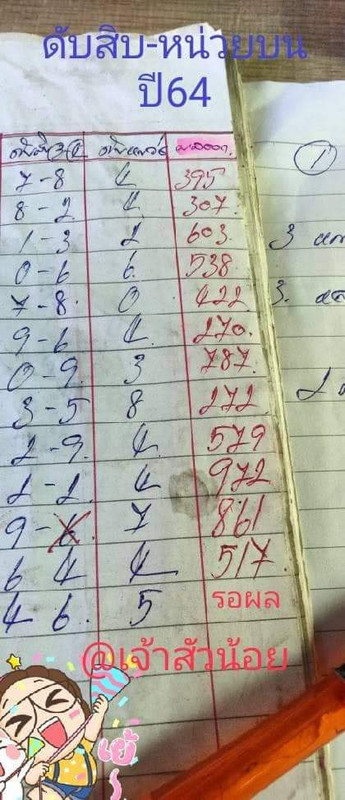 ดับสิบ-หน่วยบน
ปี64
ดับสิบ ดับหน่วย ผลออก
7-8 4 395
8-2 4 307
1-3 2 603
0-6 6 538
7-8 0 422
9-6 4 270
0-9 3 787
3-5 8 272
2-9 4 579
2-2 4 972
9-6 7 861
6 4 4 517
4 6 5 รอผล
@เจ้าสัวน้อย
เย้
1
3
3.
2